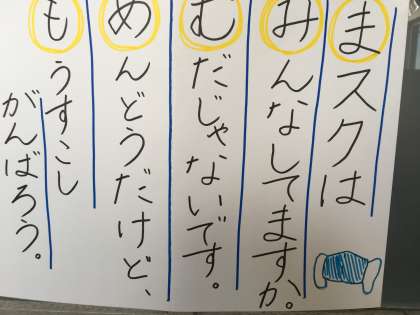 まスクは
みんなしてますか。
むだじゃないです。
めんどうだけど、
もうすこし
がんばろう。